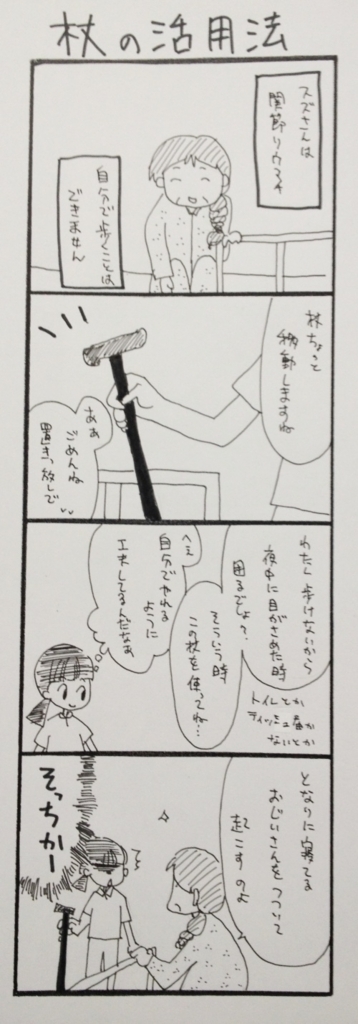 杖の活用法
スズさんは
関節リウマチ
自分で歩くことは
できません
杖ちょっと
移動しますね
あぁ
ごめんね
置きっ放しで
わたし歩けないから
夜中に目がさめた時
困るでしょ?
トイレとか
ティッシュ番か
ないとか
そういう時
この杖を使ってね…
へぇ
自分でやれる
ように
工夫してるんだなぁ
となりに寝てる
おじいさんをつついて
起こすのよ
そっちかー